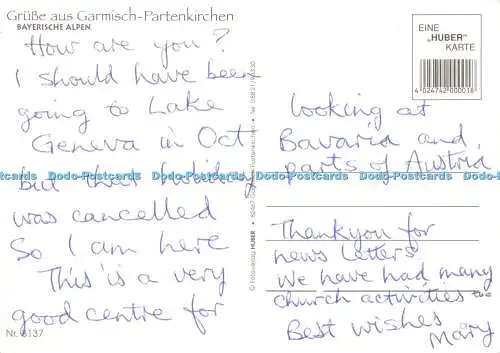 Grüße aus Garmisch-Partenkirchen
BAYERISCHE ALPEN
How are you?
I should have been
going to Lake
Geneva in Oct
but their holiday
was cancelled
So I am here
This is a very
good centre for
Nr. 8137
© Fotoverlag HUBER
EINE
„HUBER"
KARTE
4 024742 000018
looking at
Bavaria and
parts of Austria
Thankyou for
news letters
We have had many
church activities too
Best wishes
Mary
Dodo-Postcards Dodo-Postcards Dodo-Postcards Dodo-Postcards Dodo-Postcards